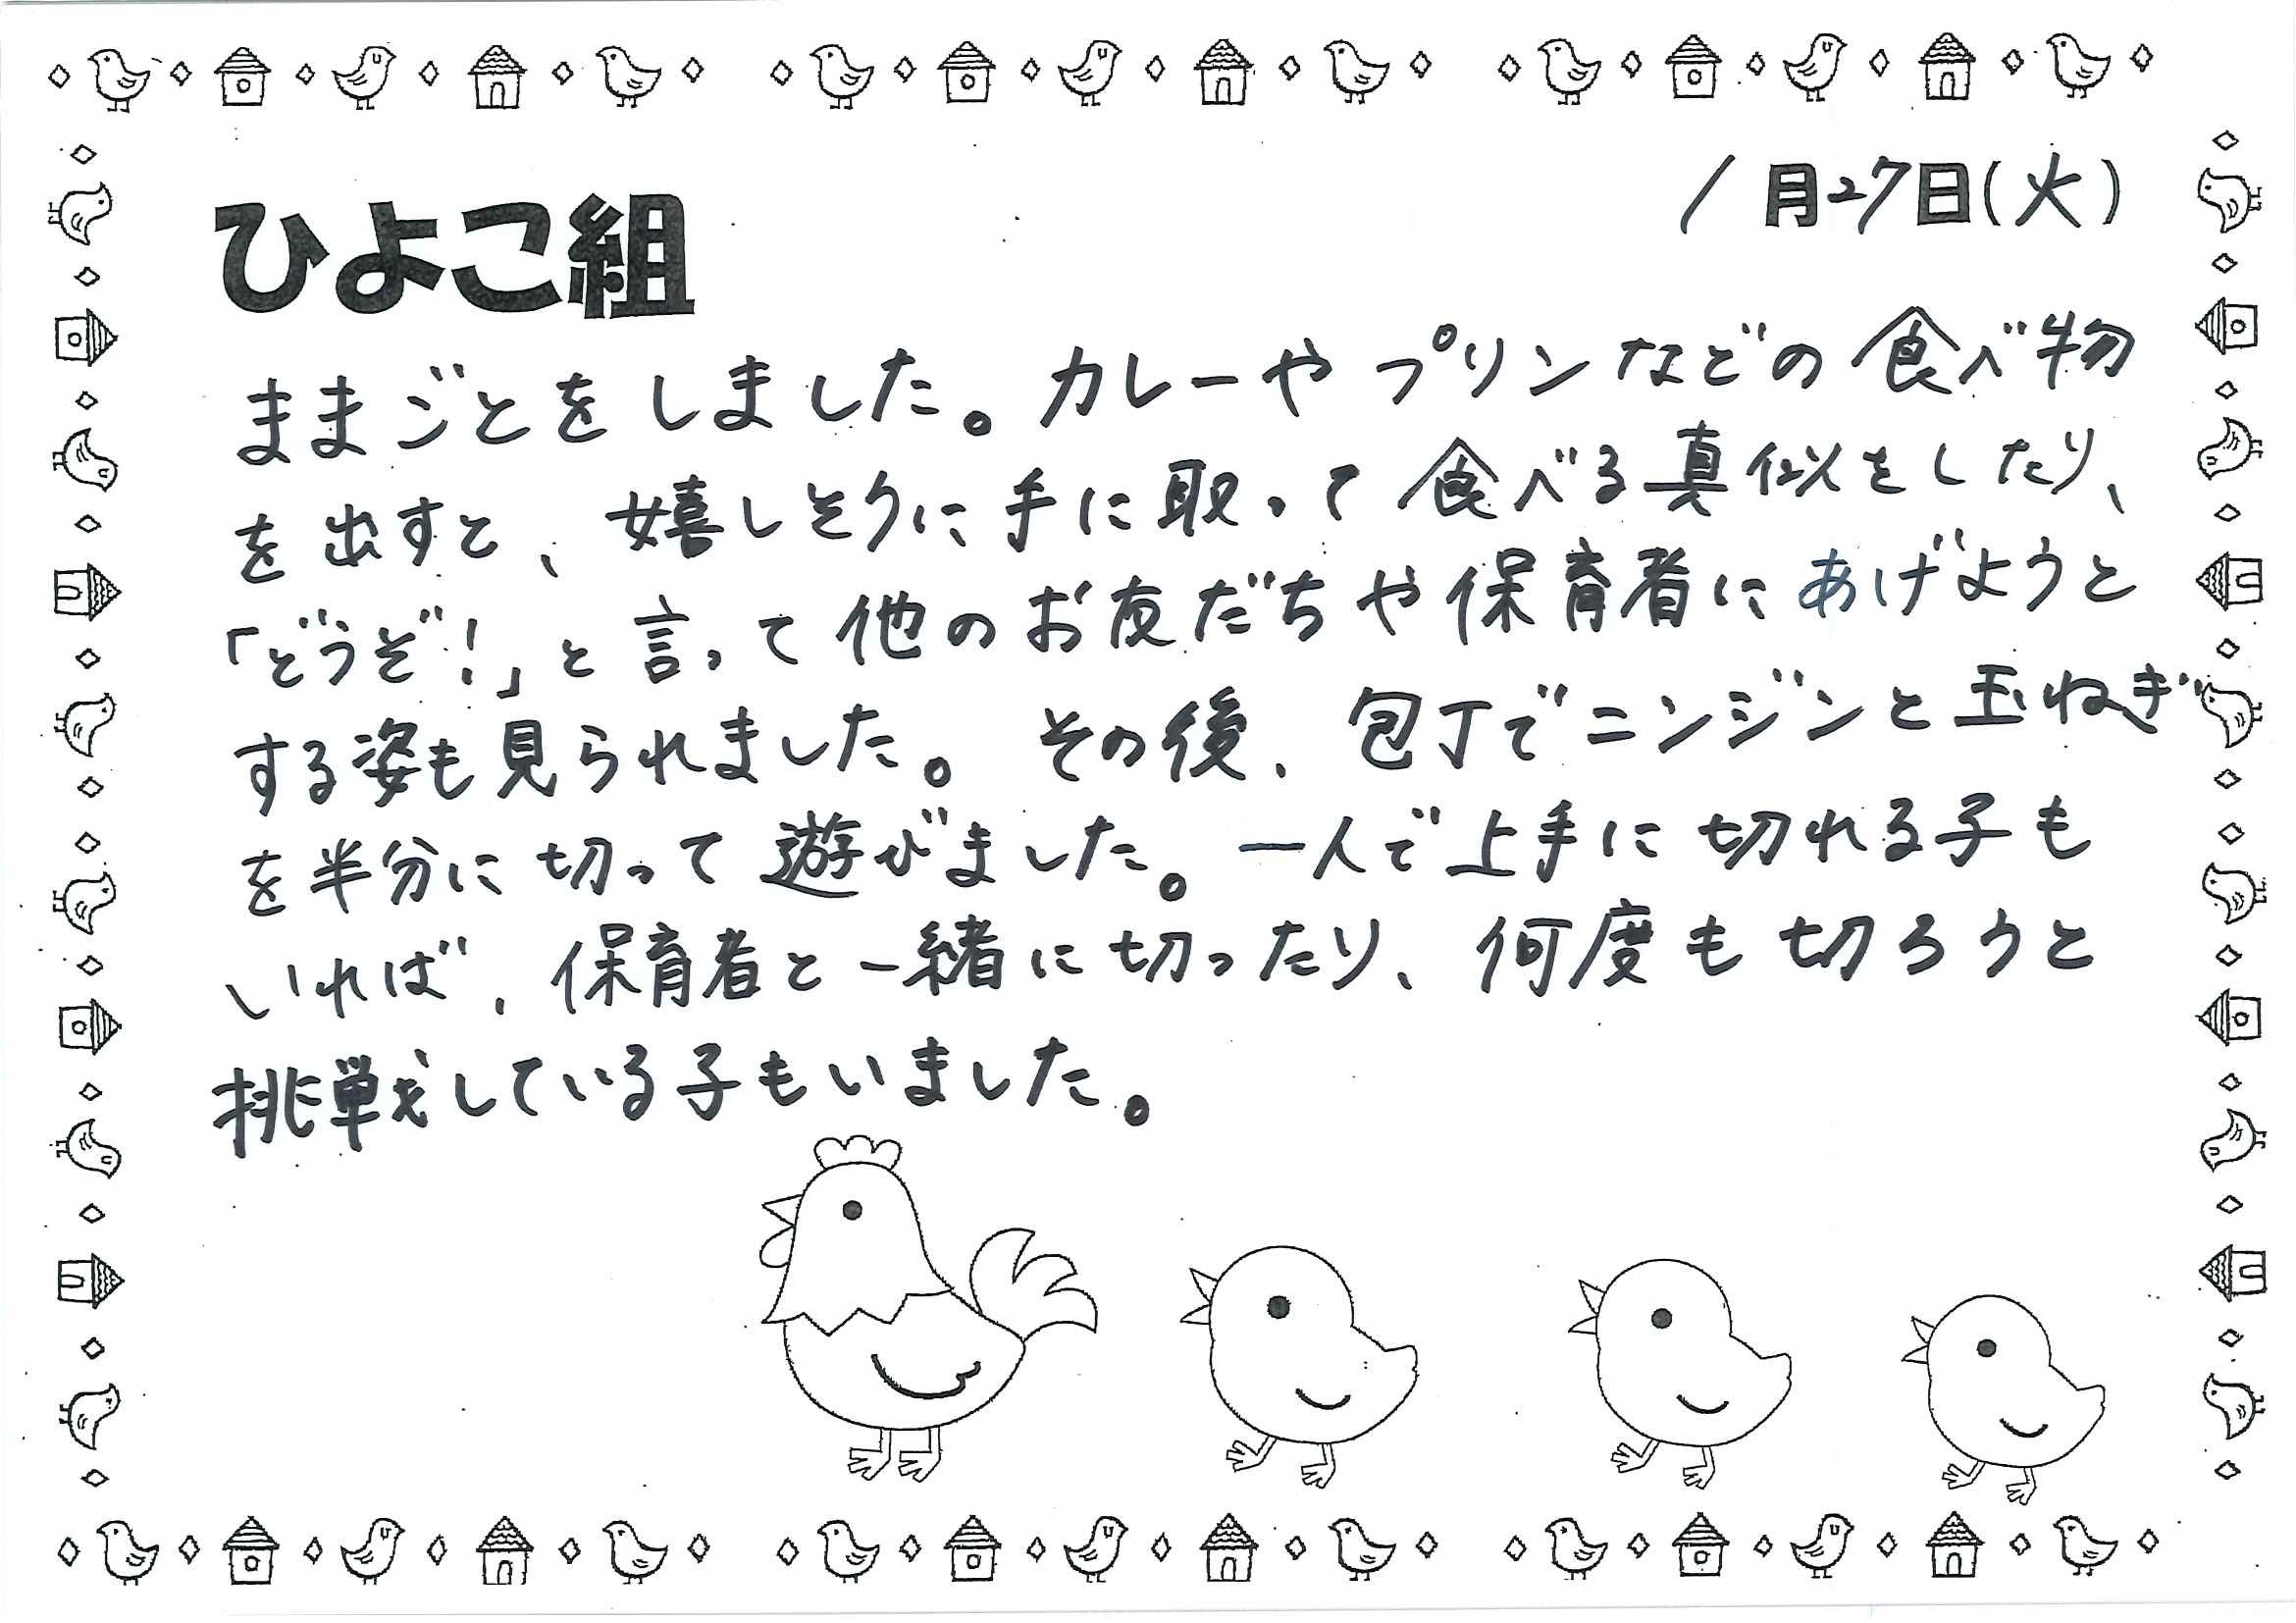 1月27日(火)
ひよこ組
ままごとをしました。カレーやプリンなどの食べ物
を出すと、嬉しそうに手に取って食べる真似をしたり、
「どうぞ!」と言って他のお友だちや保育者にあげようと
する姿も見られました。その後、包丁でニンジンと玉ねぎ
を半分に切って遊びました。一人で上手に切れる子も
いれば、保育者と一緒に切ったり、何度も切ろうと
挑戦している子もいました。